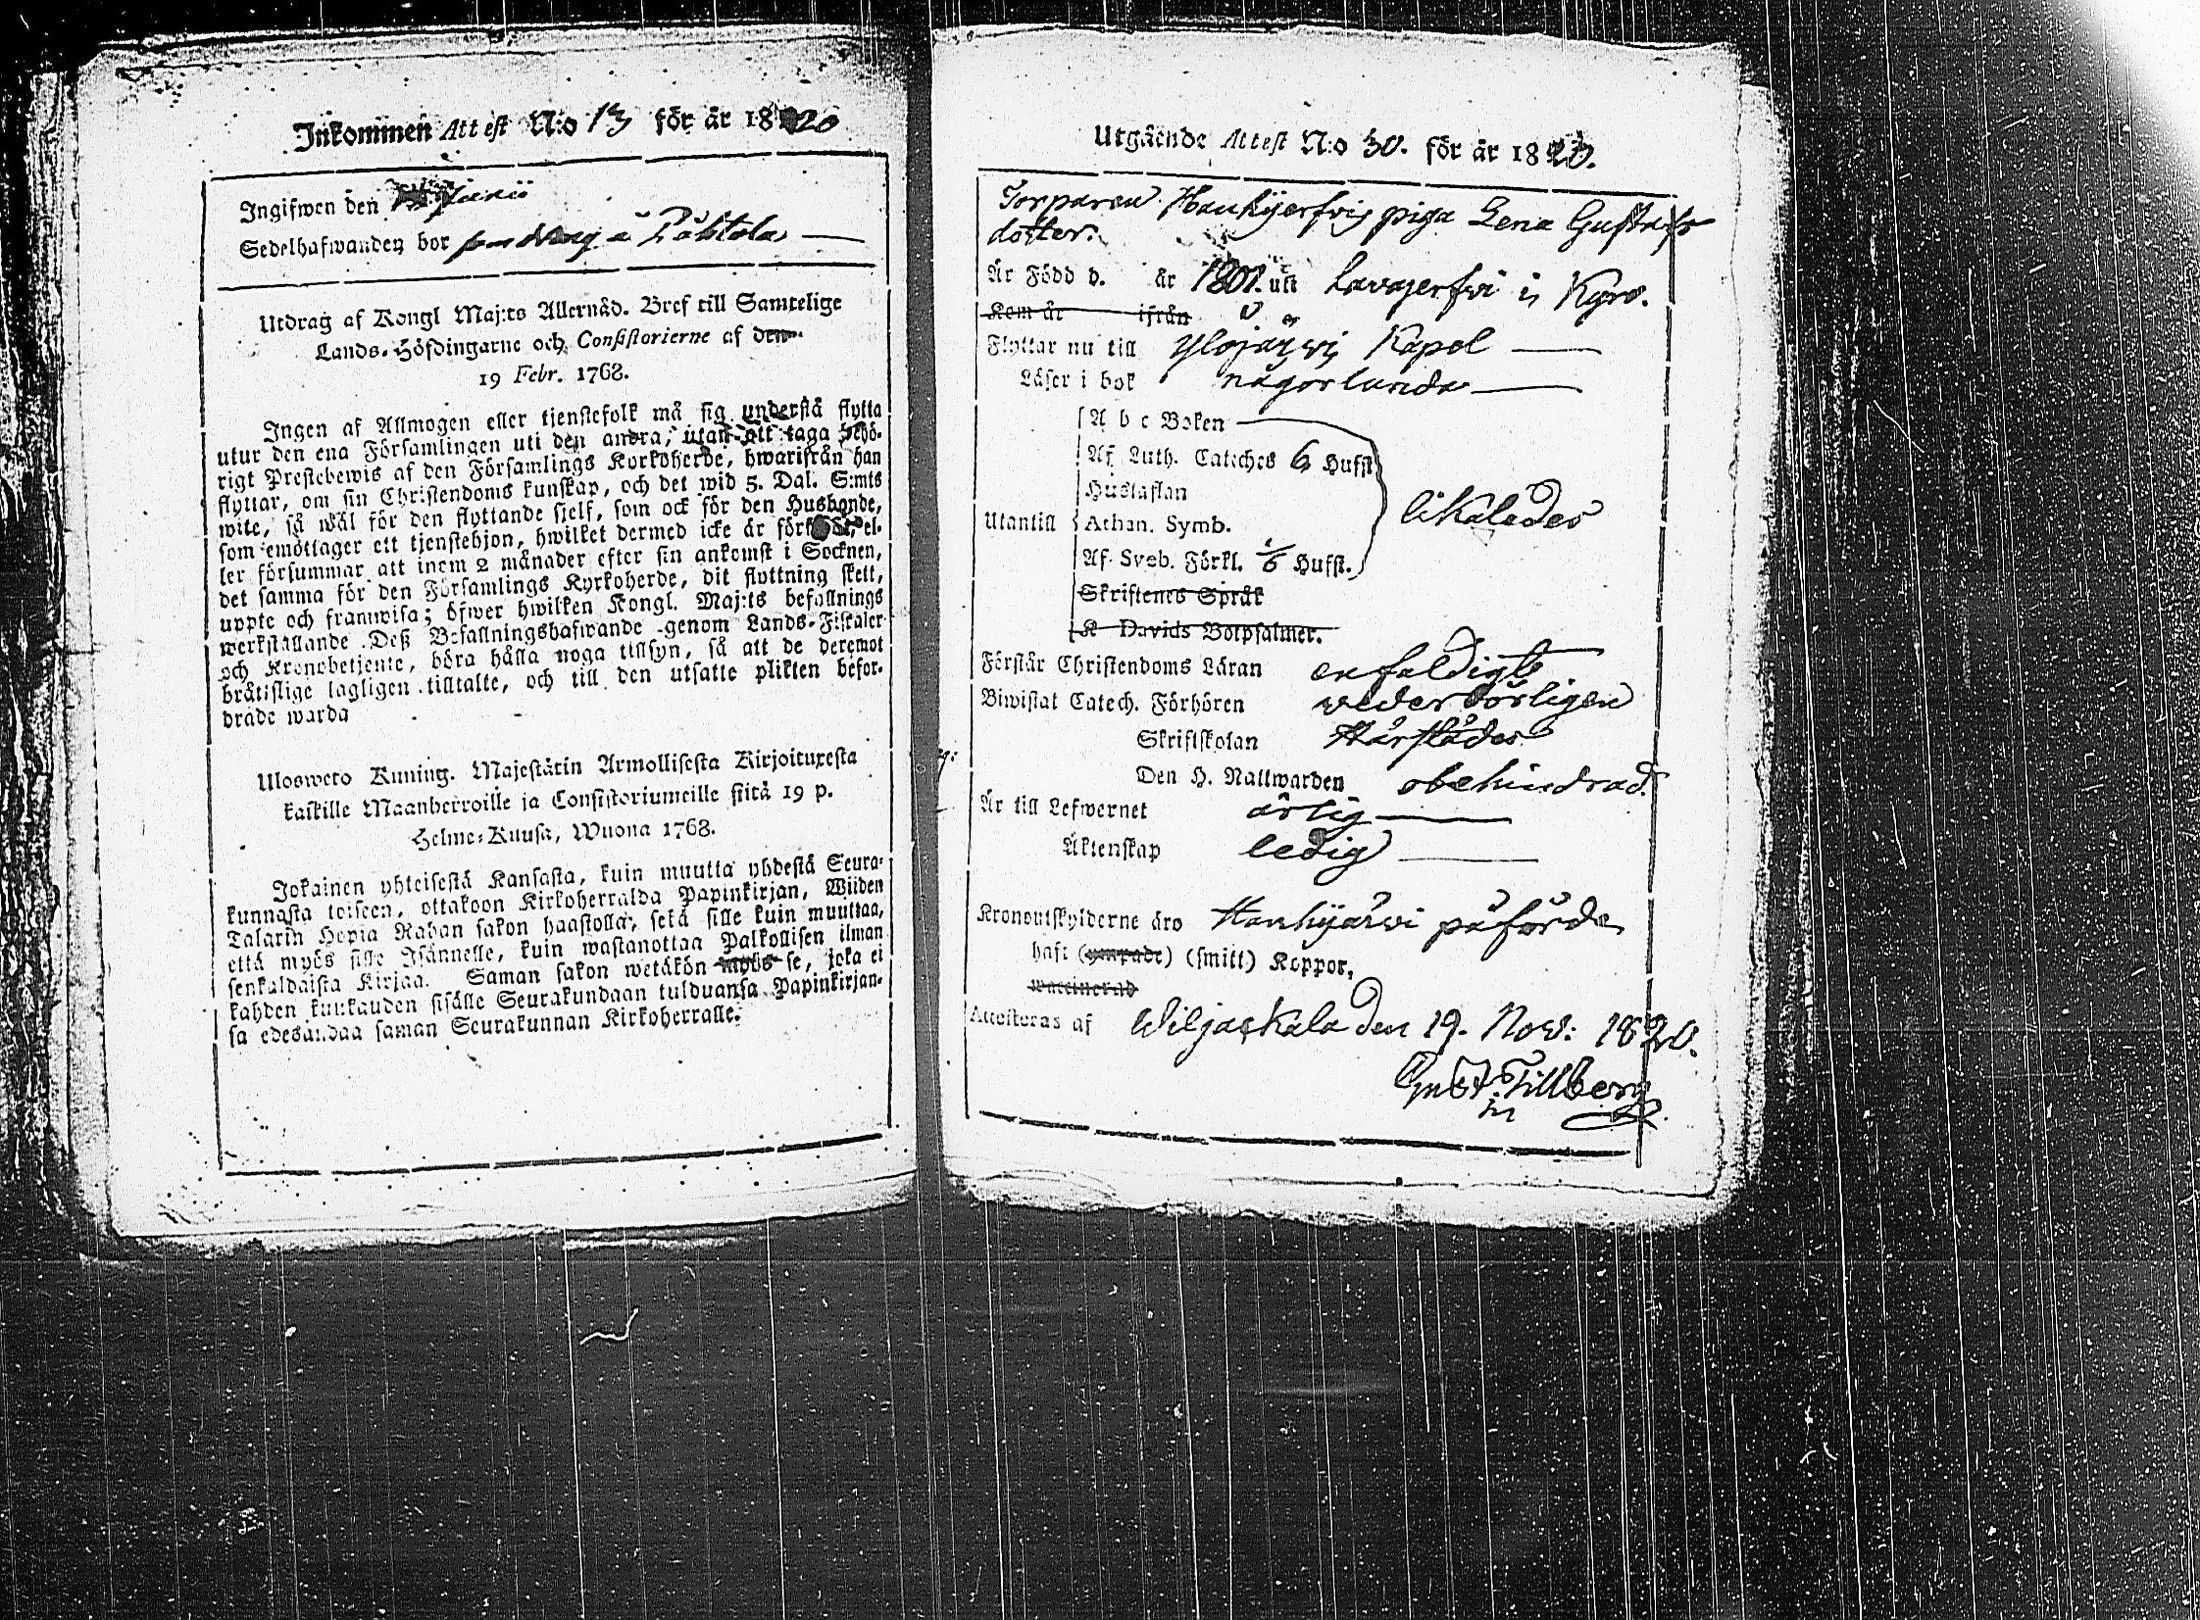 Inkommen Attest N:o 13 för år 1820
Ingifwen den Junii
Sedelhafwanden bor å Pohtola
Utdrag af Kongl Maj:ts Allernåd. Bref till Samtelige
Lands-Höfdingarne och Consistorierne af den
19 Febr. 1768.
Ingen af Allmogen eller tjenstefolk må sig understå flytta
utur den ena Församlingen uti den andra, utan att taga behö-
rigt Prestebewis af den Församlings Kyrkoherde, hwarifrån han
flyttar, om sin Christendoms kunskap, och det wid 5. Dal. S:mts
wite, så wäl för den flyttande sjelf, som ock för den Husbonde,
som emottager ett tjenstehjon, hwilket dermed icke är försedt, el-
ler försummar att inom 2 månader efter sin ankomst i Socknen,
det samma för den Församlings Kyrkoherde, dit flyttning skett,
uppte och framwisa; öfwer hwilken Kongl. Maj:ts befallnings
werkställande Deß Befallningshafwande genom Lands-Fiskaler
och Kronobetjente, böra hålla noga tillsyn, så att de deremot
bråtislige lagligen tilltalte, och till den utsatte plikten befor-
drade warda
Ulosweto Kuning. Majestätin Armollisesta Kirjoituxesta
kaikille Maanherroille ja Consistoriumeille siitä 19 p.
Helme-Kuusa, Wuona 1768.
Jokainen yhteisestä Kansasta, kuin muutta yhdestä Seura-
kunnasta toiseen, ottakoon Kirkoherralda Papinkirjan, Wiiden
Talarin Hopia Rahan sakon haastolla, sekä sille kuin muuttaa,
että myös sille Isännelle, kuin wastanottaa Palkollisen ilman
senkaldaista Kirjaa. Saman sakon wetäkön myös se, joka ei
kahden kuukauden sisälle Seurakundaan tulduansa Papinkirjan-
sa edesandaa saman Seurakunnan Kirkoherralle.
Utgående Attest N:o 30. för år 1820.
Torparen Hankijerfvis piga Lena Gustafs
dotter.
Är Född d. år 1801. uti Lavajerfvi i Kyro.
Kom år ifrån
Flyttar nu till Ylöjärvi Kapel
Läser i bok någorlunda
A b c Boken
Af Luth. Cateches 6 Hufst
Hustaflan
Utantill Athan. Symb. likaledes
Af Sveb. Förkl. 1/6 Hufst.
Skriftenes Språk
K Davids Botpsalmer.
Förstår Christendoms Läran enfaldigt
Biwistat Catech. Förhören vederbörligen
Skriftskolan Härstädes
Den H. Nattwarden obehindrad.
Är till Lefwernet ärlig
Äktenskap ledig
Kronoutskylderne äro Hankijärvi påförde
haft (ympade) (smitt) Koppor,
waccinerad
Attesteras af Wiljaskala den 19. Nov: 1820.
Gust: Tillberg